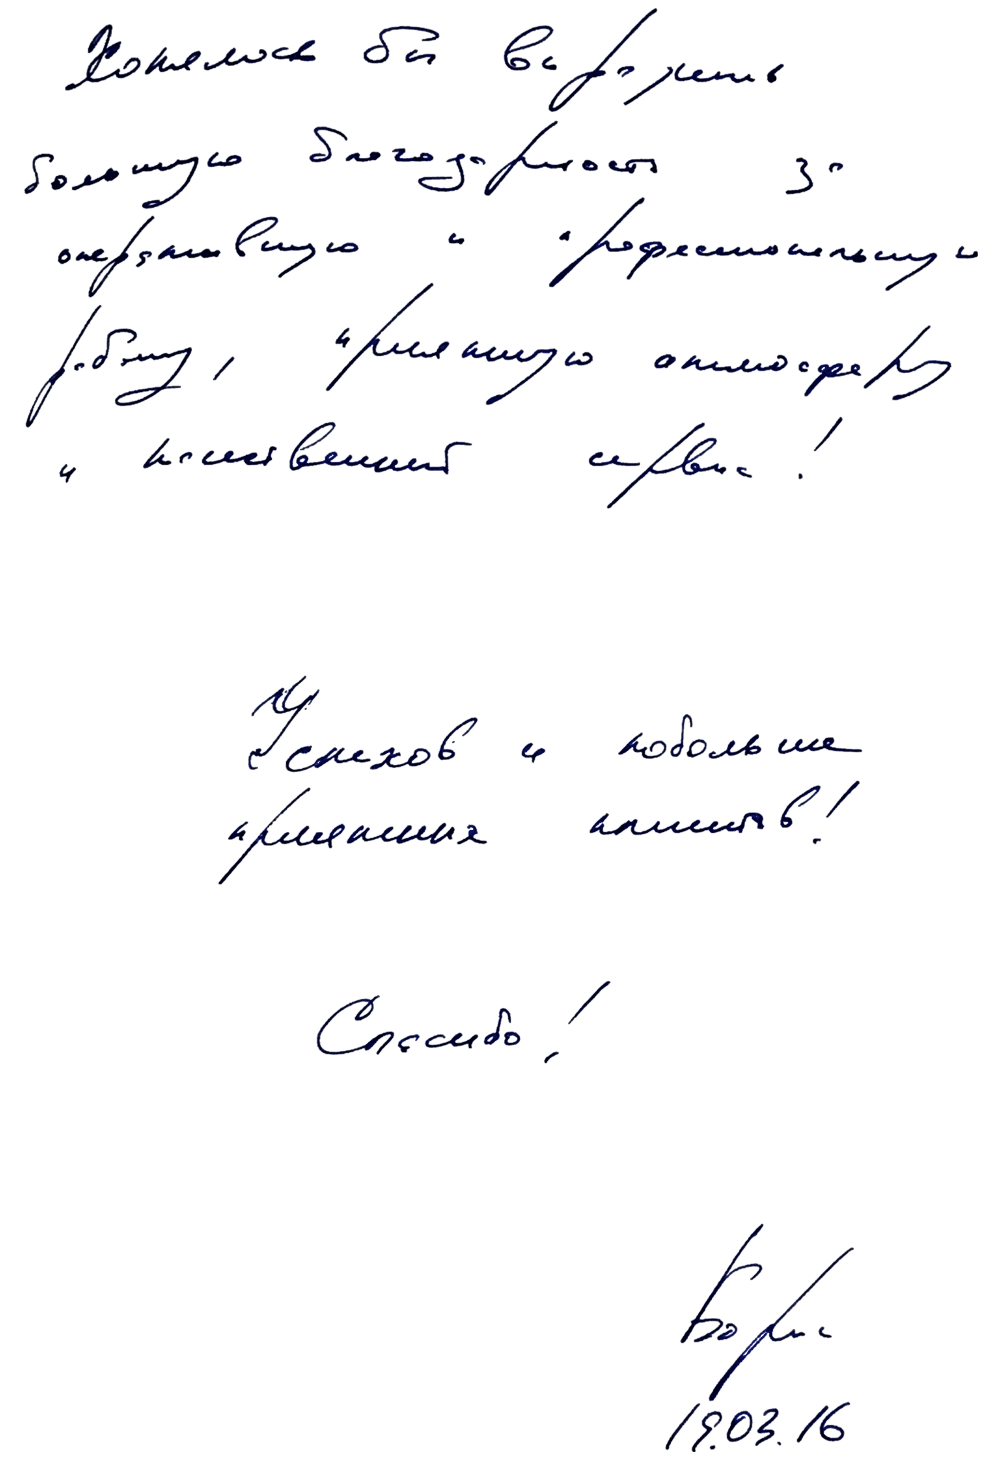 Хотелось бы выразить
большую благодарность за
оперативную и профессиональную
работу, приятную атмосферу
и качественный сервис!
Успехов и побольше
приятных клиентов!
Спасибо!
Борис
19.03.16